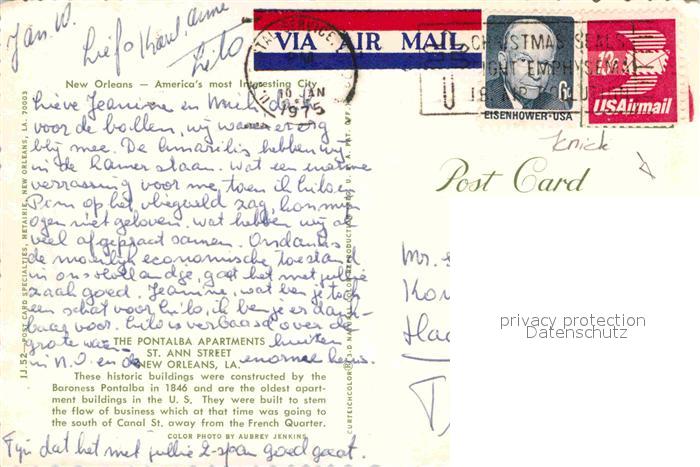 Jan. W.
Liefs Karel, Anne
Lilo
VIA AIR MAIL
POSTAL SERVICE
PM
10 JAN
1975
CHRISTMAS SEALS
FIGHT EMPHYSEMA
EISENHOWER·USA
6c
USAirmail
knick
New Orleans — America's most Interesting City
Lieve Jeannine en
voor de bollen, wij waren er erg
blij mee. De Amarilis hebben wij
in de kamer staan. Wat een enorme
verrassing voor me, toen ik Lilo en
Pim op het vliegveld zag, kon mijn
ogen niet geloven. Wat hebben wij al
veel afgepraat samen. Ondanks
de moeilijk economische toestand
in ons Hollandje, gaat het met jullie
zaak goed. Jeannine, wat ben je toch
een schat voor Lilo, ik ben je er dank-
baar voor. Lilo is verbaasd over de
grote
in N.O. en de enorme huis.
THE PONTALBA APARTMENTS
ST. ANN STREET
NEW ORLEANS, LA.
These historic buildings were constructed by the
Baroness Pontalba in 1846 and are the oldest apart-
ment buildings in the U. S. They were built to stem
the flow of business which at that time was going to
the south of Canal St. away from the French Quarter.
COLOR PHOTO BY AUBREY JENKINS
Fijn dat het met jullie 2-span goed gaat.
IJ.52—POST CARD SPECIALTIES, METAIRIE, NEW ORLEANS, LA. 70003
Post Card
Mr.
privacy protection
Datenschutz